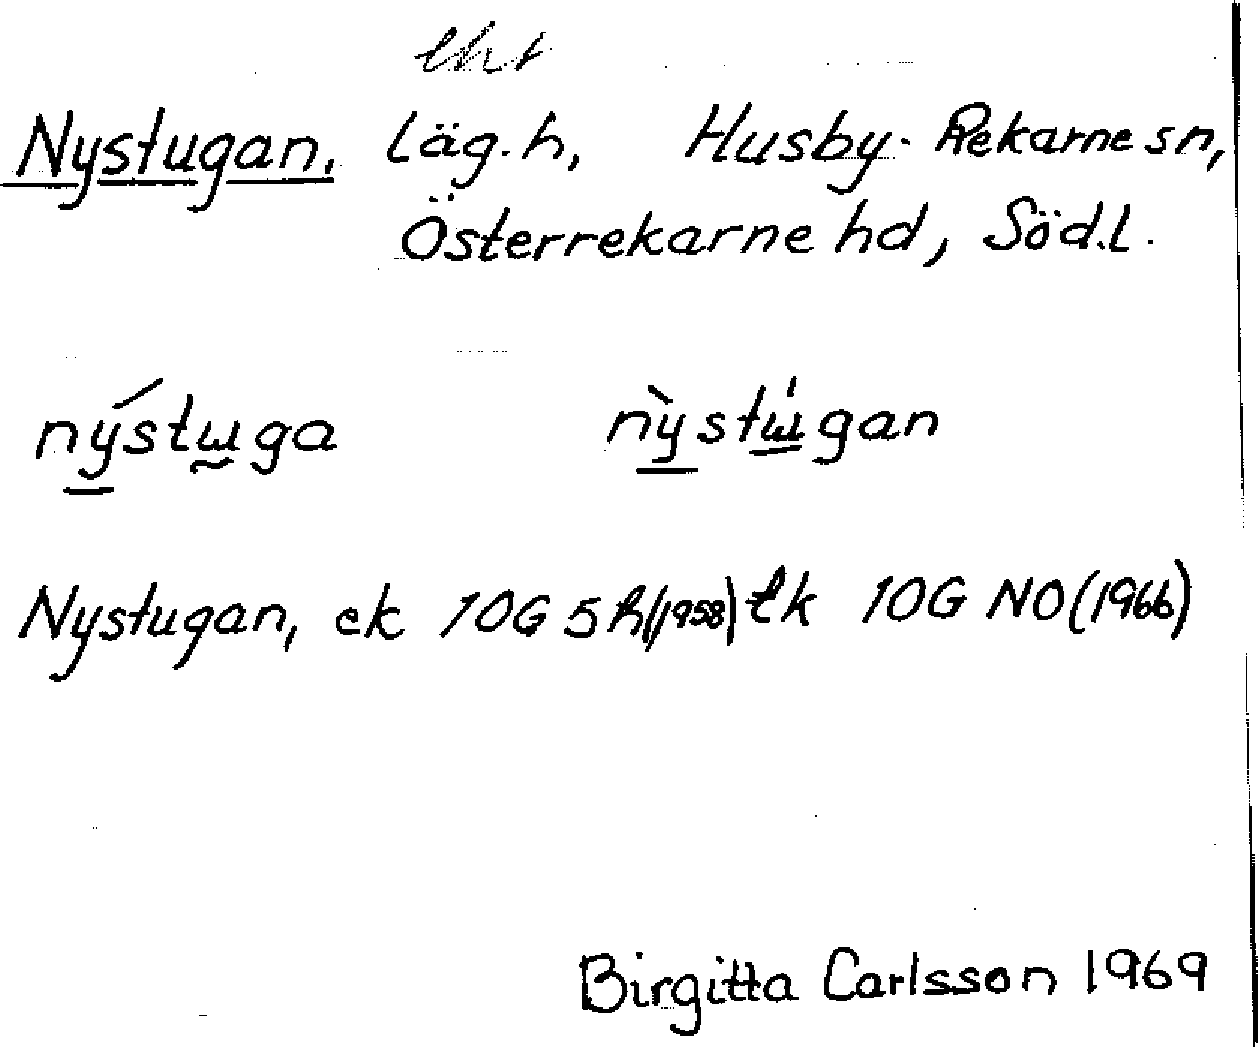 lht
Nystugan. Läg.h, Husby-Rekarne sn,
Österrekarne hd, Söd.l.
nýstɯga nỳstɯ́gan
Nystugan, ek 10G 5h (1958) tk 10G NO (1966)
Birgitta Carlsson 1969